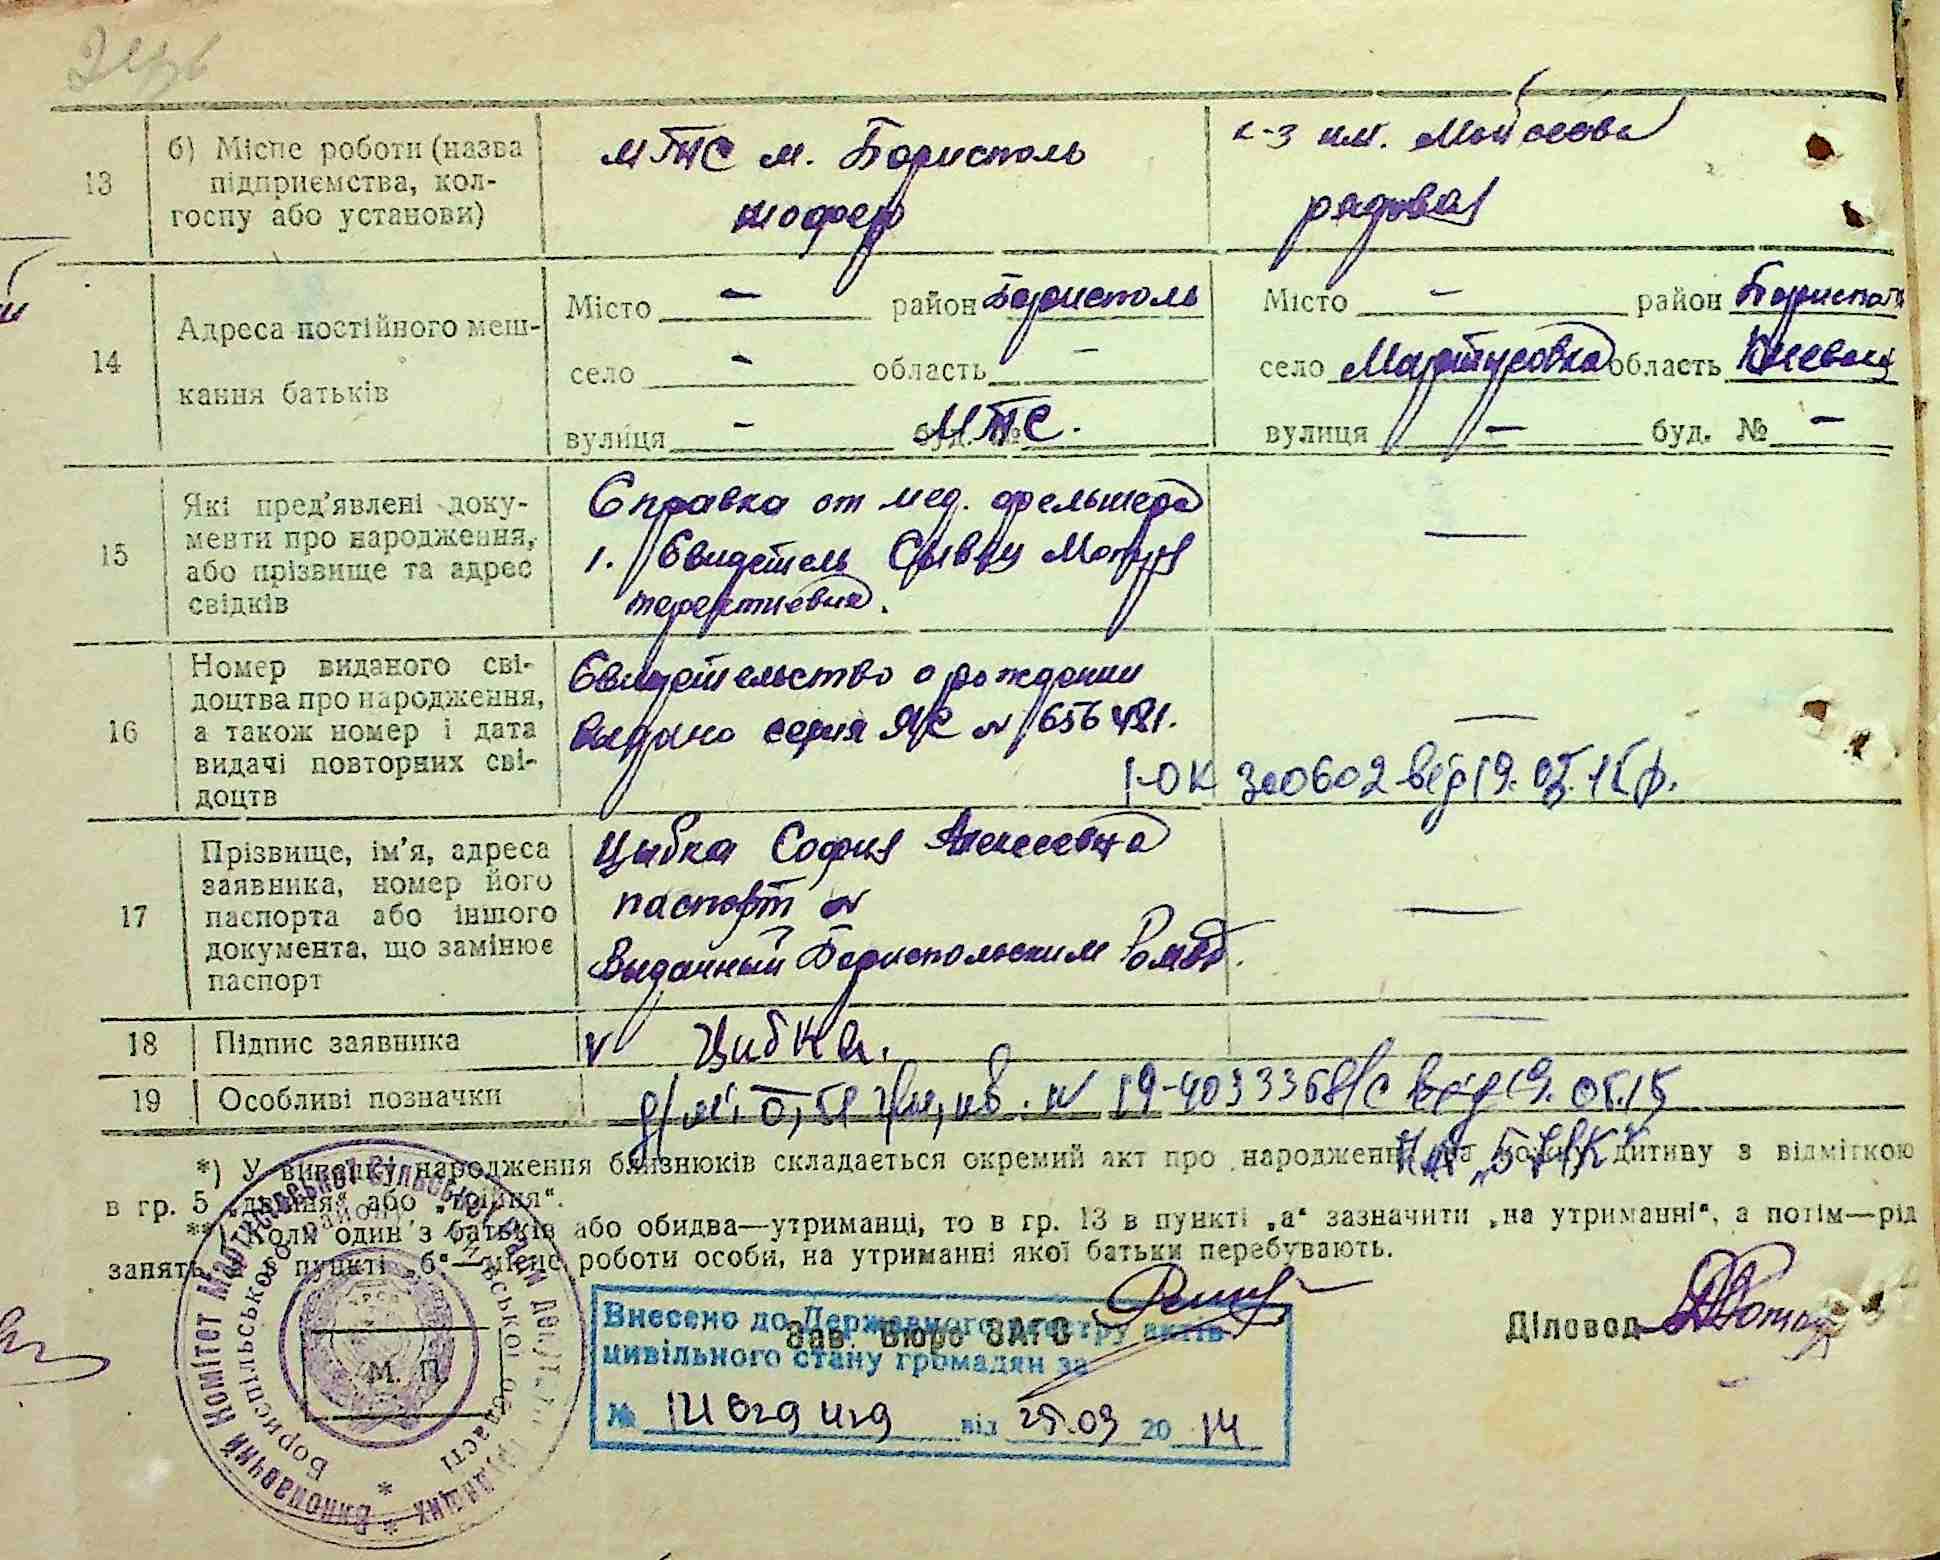 13
б) Місце роботи (назва
підприємства, кол-
госпу або установи)
МТС м. Борисполь
шофер
к-з им. Мойсеева
рядовая
14
Адреса постійного меш-
кання батьків
Місто — район Борисполь
село — область —
вулиця — буд. № МТС.
Місто — район Борисполь
село Мартусовка область Киевская
вулиця — буд. № —
15
Які пред'явлені доку-
менти про народження,
або прізвище та адрес
свідків
Справка от мед. фельшера
1. Свидетель Сывец Мотря
терентиевна.
—
16
Номер виданого сві-
доцтва про народження,
а також номер і дата
видачі повторних сві-
доцтв
Свидетельство о рождении
выдано серия ЯС № 656481.
—
І-ОК 300602 від 19.05.15р.
17
Прізвище, ім'я, адреса
заявника, номер його
паспорта або іншого
документа, що замінює
паспорт
Цыбка София Алексеевна
паспорт №
Выданный Бориспольским
—
18
Підпис заявника
v Цибка.
—
19
Особливі позначки
від 19.05.15
*) У випадку народження близнюків складається окремий акт про народження на кожну дитину з відміткою
в гр. 5 „двійня" або „трійня".
**) Коли один з батьків або обидва—утриманці, то в гр. 13 в пункті „а" зазначити „на утриманні", а потім—рід
занять, в пункті „б"—місце роботи особи, на утриманні якої батьки перебувають.
Зав. Бюро ЗАГС
Діловод
М. П.
Виконавчий Комітет Мартусівської сільської Ради депутатів трудящих
Бориспільського району Київської області
Внесено до Державного реєстру актів
цивільного стану громадян за
№ від 25.03 2014